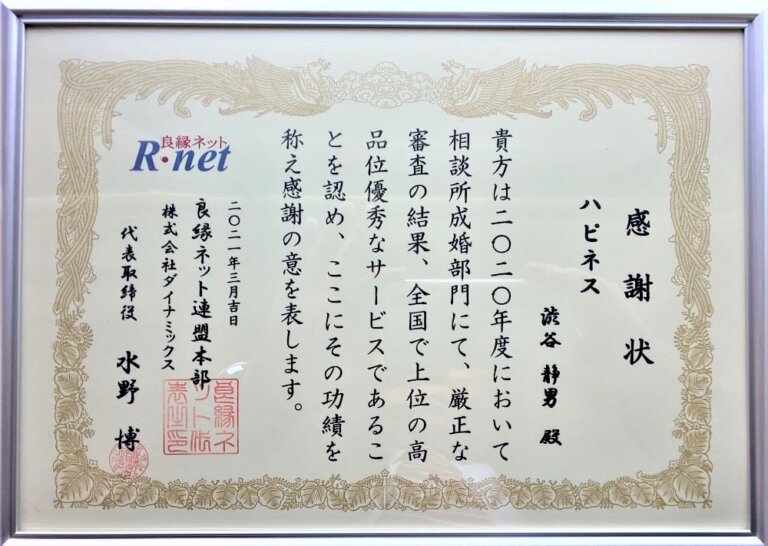 感謝状
ハピネス
渋谷 静男 殿
貴方は二〇二〇年度において
相談所成婚部門にて、厳正な
審査の結果、全国で上位の高
品位優秀なサービスであるこ
とを認め、ここにその功績を
称え感謝の意を表します。
良縁ネット
R・net
二〇二一年三月吉日
良縁ネット連盟本部
株式会社ダイナミックス
代表取締役 水野 博